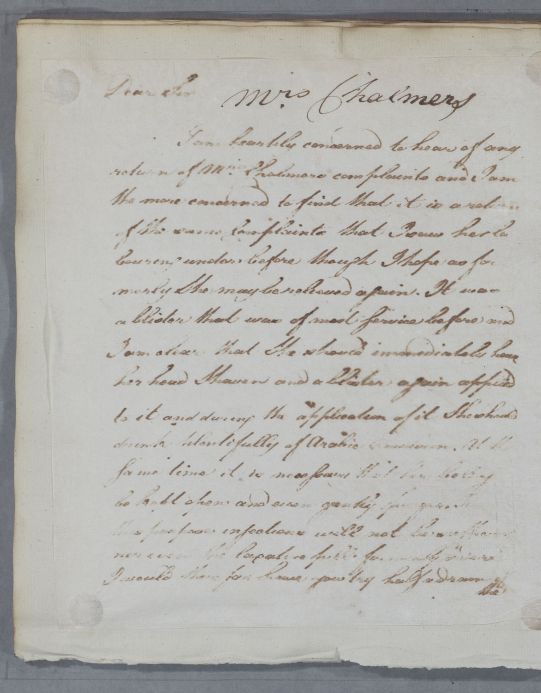 Dear Sir
Mrs Chalmers
I am heartily concerned to hear of any
return of Mrs Chalmers complaints and I am
the more concerned to find that it is a return
of the same Complaints that I saw her la
bouring under before though I hope as for
merly She may be relieved again. It was
a blister that was of most Service before and
I am clear that She should immediately have
her head Shaven and a blister again applied
to it and during the application of it She should
drink plentifully of Arabic Emulsion. At the
same time it is necessary that her belly
be kept open and even gently purged
this purpose infusions will not be
nor even the laxative pills
I would therefore have you try half a dram of
the